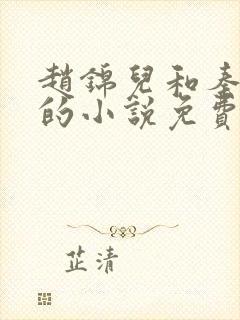 趙錦兒和秦
的小說免費
芷清